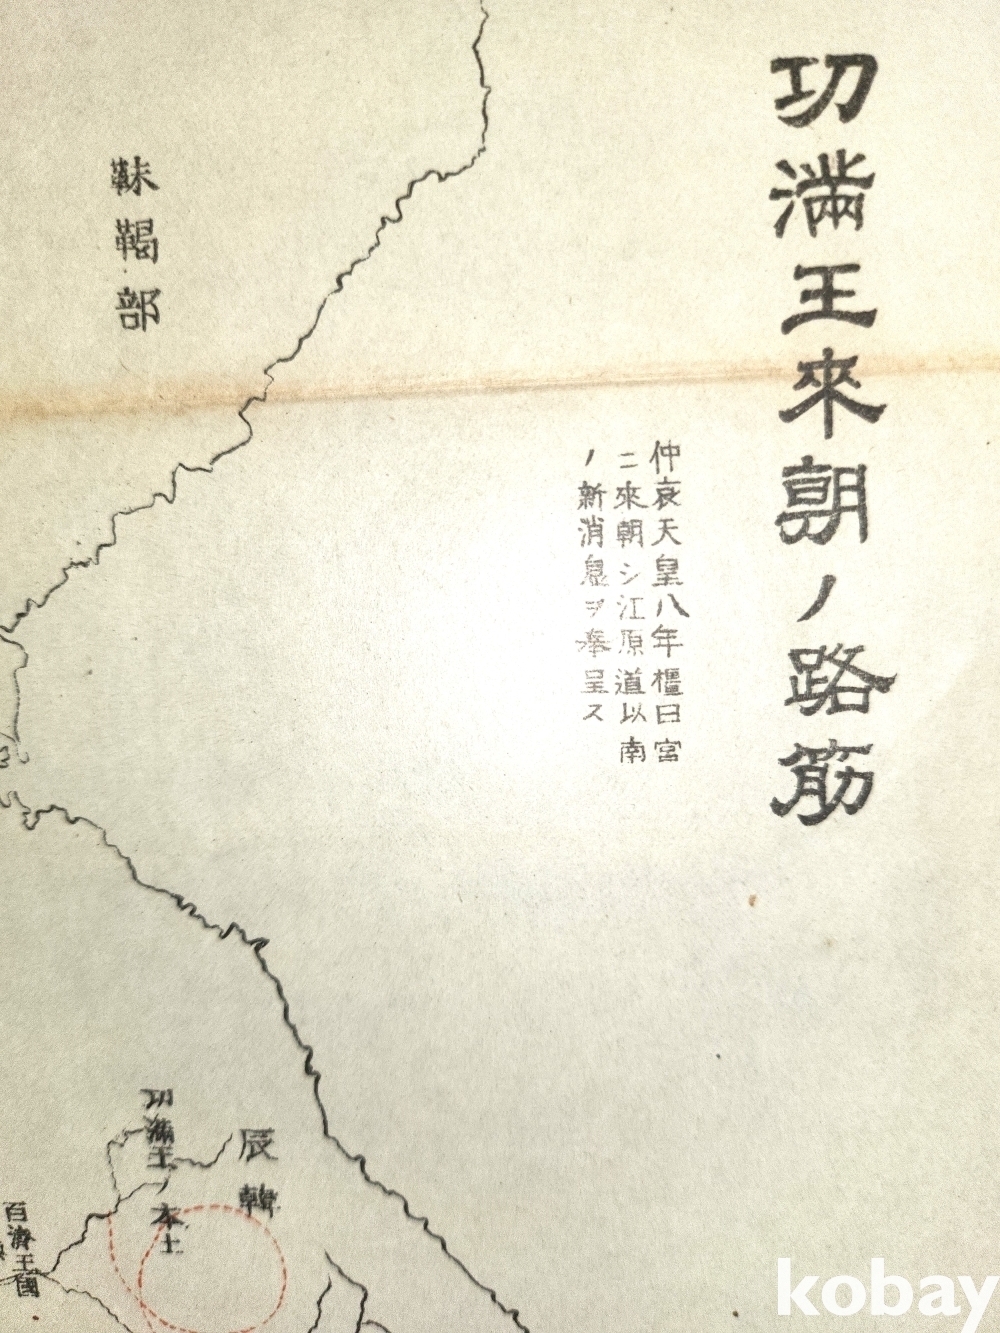 功滿王來朝ノ路筋
仲哀天皇八年橿日宮
ニ來朝シ江原道以南
ノ新消息ヲ奉呈ス
靺鞨部
辰韓
功滿王ノ本土
百濟王國
kobay